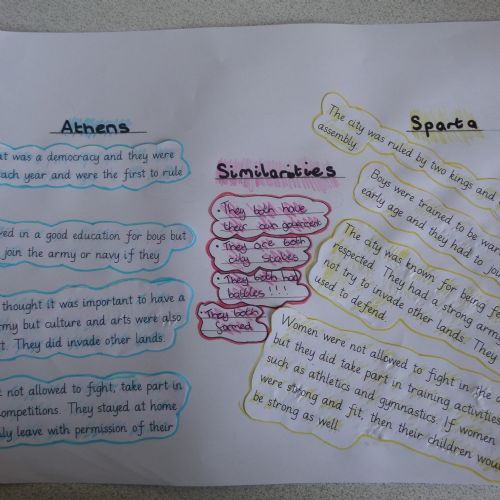 Athens
at was a democracy and they were
ach year and were the first to rule
ved in a good education for boys but
join the army or navy if they
thought it was important to have a
rmy but culture and arts were also
t. They did invade other lands.
not allowed to fight, take part in
ompetitions. They stayed at home
ly leave with permission of their
Similarities
• They both have
their own government
• They are both
city states
• They both had
battles !!!
• They both
farmed
Sparta
The city was ruled by two kings and
assembly.
Boys were trained to be war
early age and they had to jo
The city was known for being fe
respected. They had a strong army
not try to invade other lands. They
used to defend.
Women were not allowed to fight in the a
but they did take part in training activities
such as athletics and gymnastics. If women
were strong and fit, then their children woul
be strong as well.